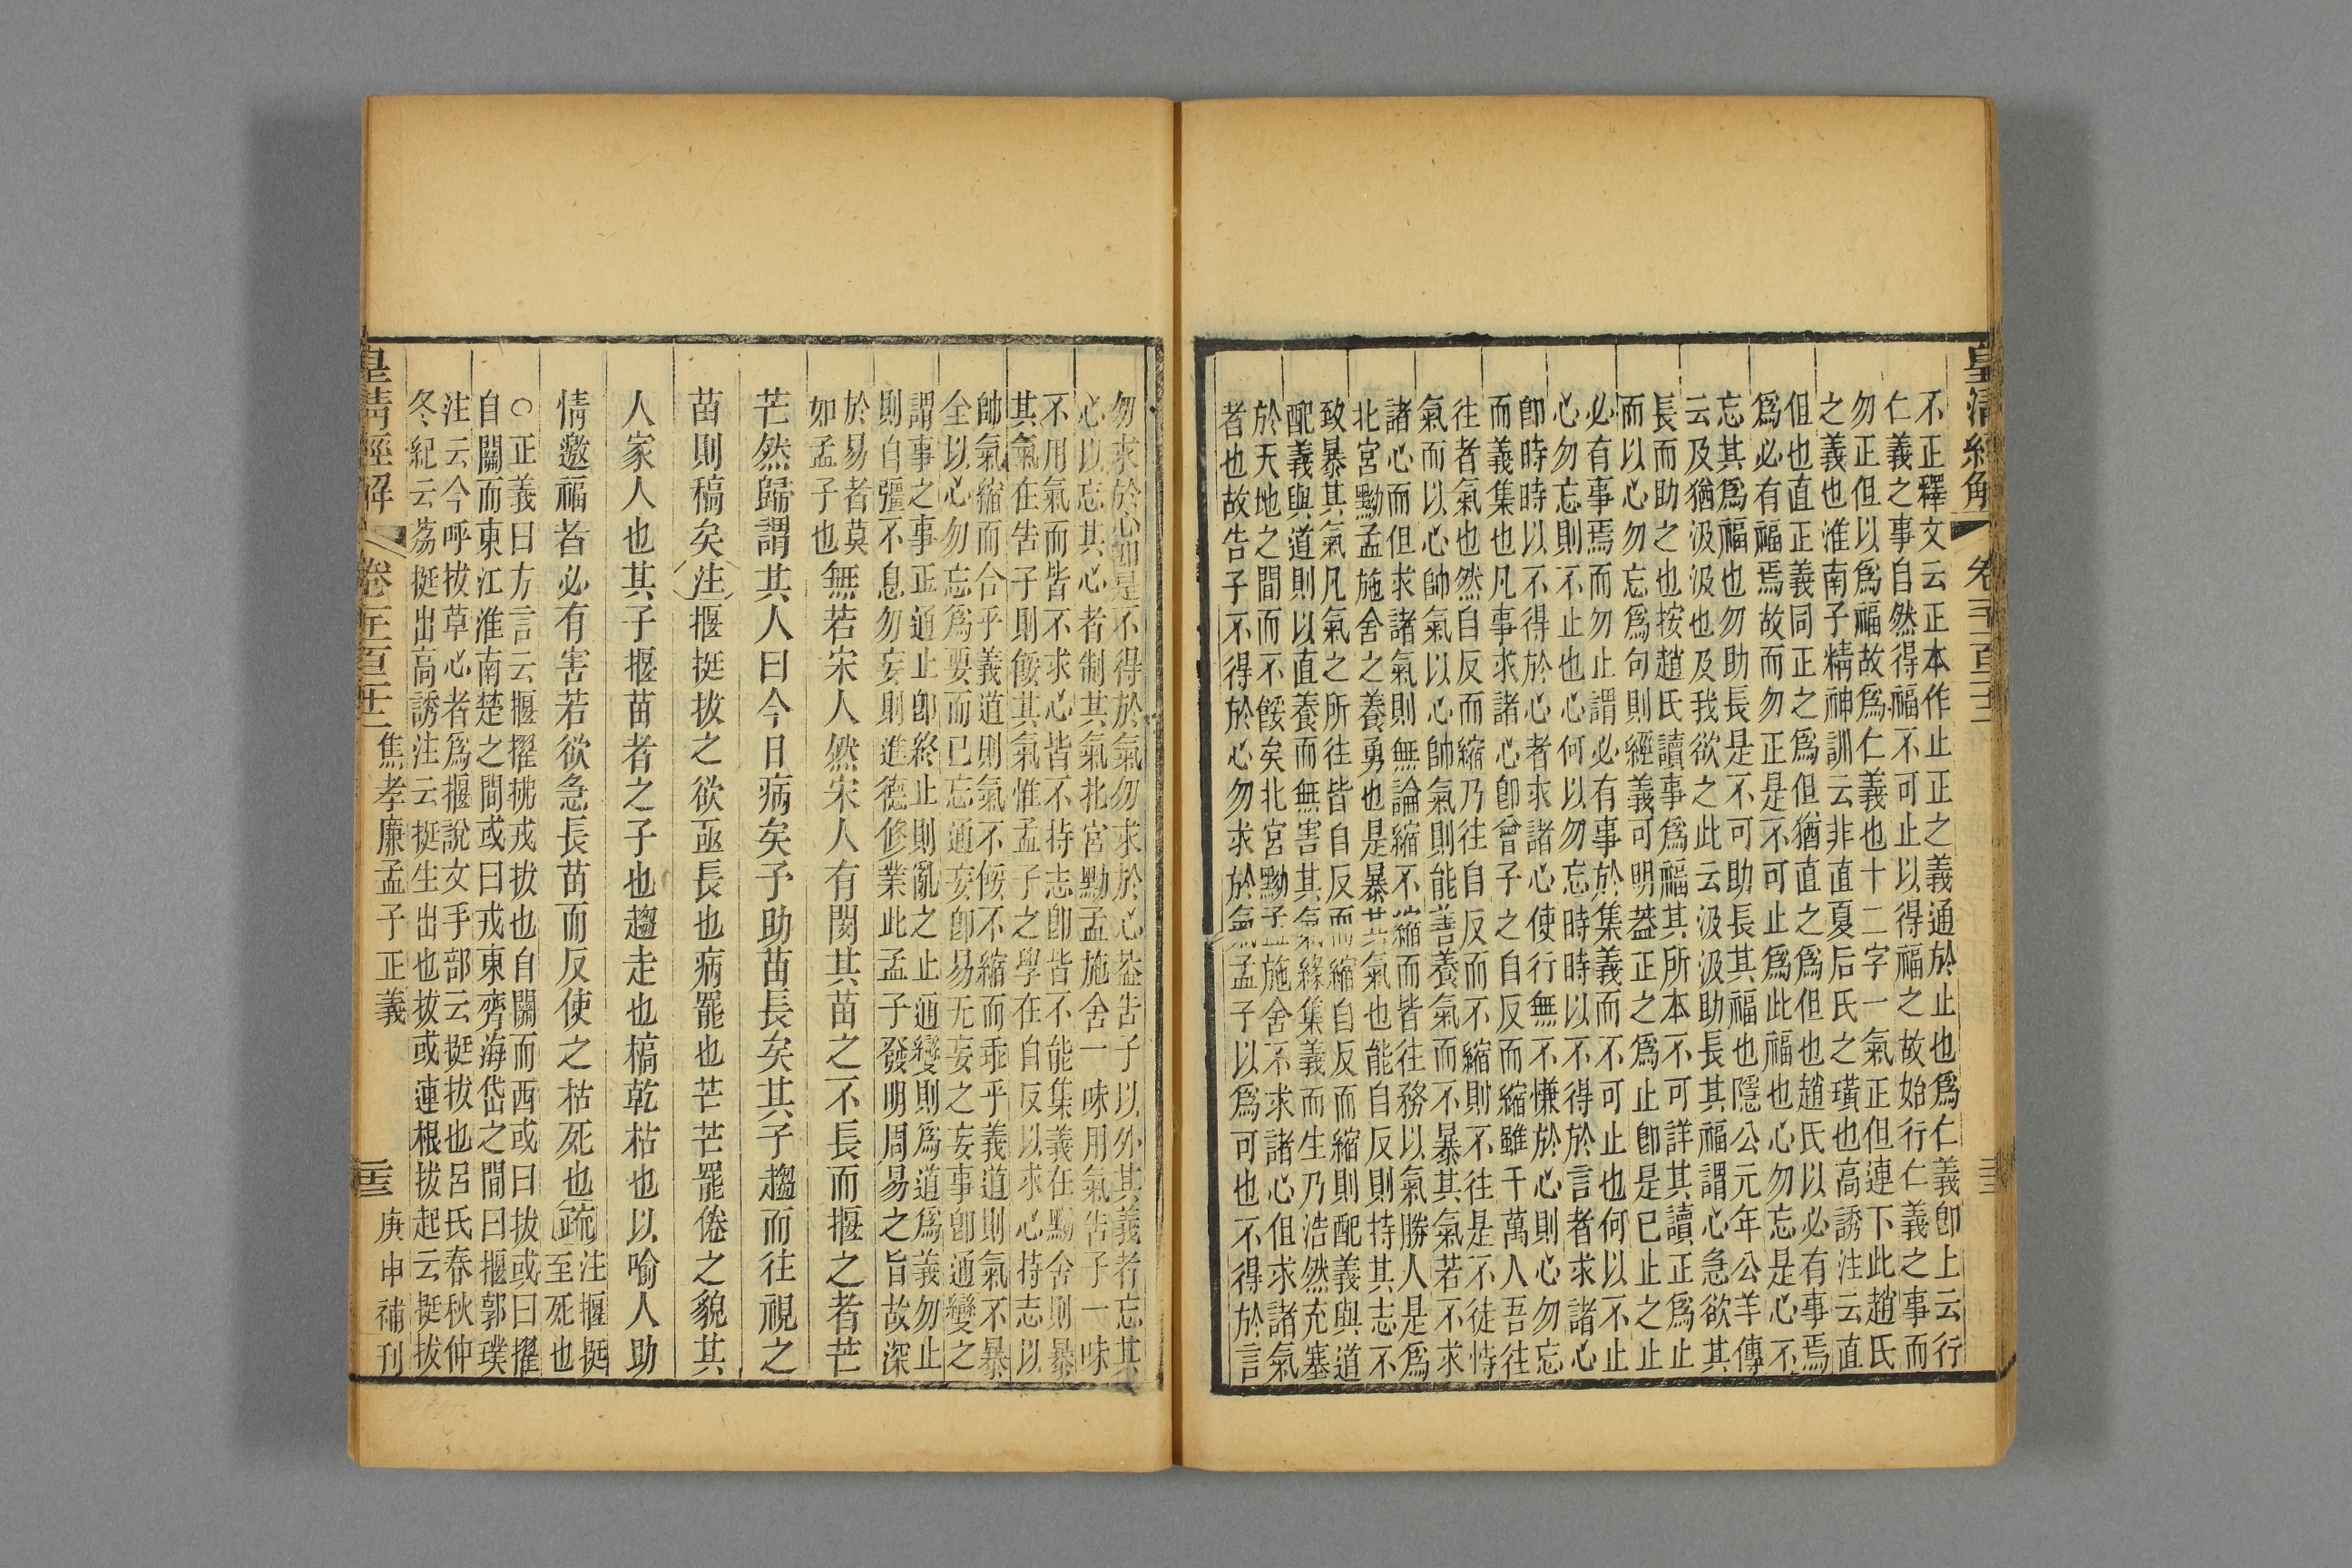 不正釋文云正本作止正之義通於止也爲仁義卽上云行
仁義之事自然得福不可止以得福之故始行仁義之事而
勿正但以爲福故爲仁義也十二字一氣正但連下此趙氏
之義也淮南子精神訓云非直夏后氏之璜也高誘注云直
但也直正義同正之爲但猶直之爲但也趙氏以必有事焉
爲必有福焉故而勿正是不可止爲此福也心勿忘是心不
忘其爲福也勿助長是不可助長其福也隱公元年公羊傳
云及猶汲汲也及我欲之此云汲汲助長其福謂心急欲其
長而助之也按趙氏讀事爲福其所本不可詳其讀正爲止
而以心勿忘爲句則經義可明蓋正之爲止卽是已止之止
必有事焉而勿止謂必有事於集義而不可止也何以不止
心勿忘則不止也心何以勿忘時時以不得於言者求諸心
卽時時以不得於心者求諸心使行無不慊於心則心勿忘
而義集也凡事求諸心卽曾子之自反而縮雖千萬人吾往
往者氣也然自反而縮乃往自反而不縮則不往是不徒恃
氣而以心帥氣以心帥氣則能善養氣而不暴其氣若不求
諸心而但求諸氣則無論縮不縮而皆往務以氣勝人是爲
北宮黝孟施舍之養勇也是暴其氣也能自反則持其志不
致暴其氣凡氣之所往皆自反而縮自反而縮則配義與道
配義與道則以直養而無害其氣緣集義而生乃浩然充塞
於天地之間而不餒矣北宮黝孟施舍不求諸心但求諸氣
者也故告子不得於心勿求於氣孟子以爲可也不得於言
皇清經解
勿求於心卽是不得於氣勿求於心蓋告子以外其義者忘其
心以忘其心者制其氣北宮黝孟施舍一味用氣告子一味
不用氣而皆不求心皆不持志卽皆不能集義在黝舍則暴
其氣在告子則餒其氣惟孟子之學在自反以求心持志以
帥氣縮而合乎義道則氣不餒不縮而乖乎義道則氣不暴
全以心勿忘爲要而已忘通妄卽易无妄之妄事卽通變之
謂事之事正通止卽終止則亂之止通變則爲道爲義勿止
則自彊不息勿妄則進德修業此孟子發明周易之旨故深
於易者莫
如孟子也
無若宋人然宋人有閔其苗之不長而揠之者芒
芒然歸謂其人曰今日病矣予助苗長矣其子趨而往視之
苗則稿矣注揠挺拔之欲亟長也病罷也芒芒罷倦之貌其
人家人也其子揠苗者之子也趨走也槁乾枯也以喻人助
情邀福者必有害若欲急長苗而反使之枯死也疏注揠挺
至死也
○正義曰方言云揠擢拂戎拔也自關而西或曰拔或曰擢
自關而東江淮南楚之間或曰戎東齊海岱之間曰揠郭璞
注云今呼拔草心者爲揠說文手部云挺拔也呂氏春秋仲
冬紀云荔挺出高誘注云挺生出也拔或連根拔起云挺拔
皇清經解
焦孝廉孟子正義
庚申補刊